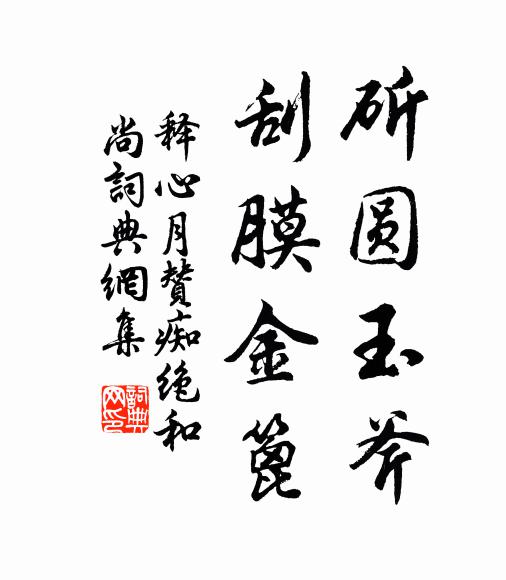 斫圆玉斧
刮膜金篦
释心月赞痴绝和
尚詞典網集
詞典
网印